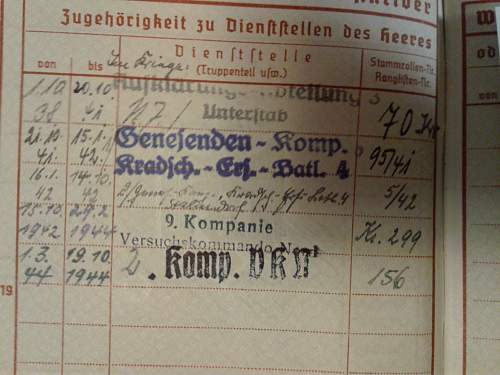 Zugehörigkeit zu Dienststellen des Heeres
von
bis
Im Kriege
Dienststelle
(Truppenteil usw.)
Stammrollen-Nr.
Ranglisten-Nr.
W
od
von
1.10. 20.10
Aufklärungs-Abteilung 3
38. 41
Unterstab
70
21.10. 15.1.
Genesenden-Komp.
41. 42.
Kradsch.-Ers.-Batl. 4
95/41
16.1. 14.10
42 42
5/42
15.10. 29.2
9. Kompanie
1942 1944
Versuchskommando Nord
299
1.3. 19.10
2. Komp. VKN
44 1944
156
19